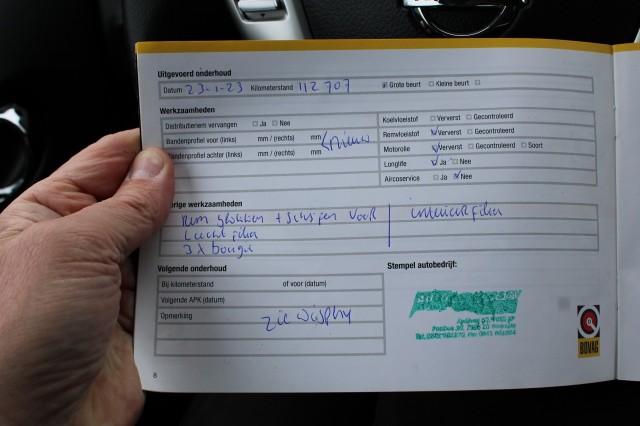 Uitgevoerd onderhoud
Datum 23-1-23 Kilometerstand 112707 Grote beurt Kleine beurt
Werkzaamheden
Distributieriem vervangen Ja Nee
Bandenprofiel voor (links) mm / (rechts) mm
Bandenprofiel achter (links) mm / (rechts) mm
nieuw
Koelvloeistof Ververst Gecontroleerd
Remvloeistof Ververst Gecontroleerd
Motorolie Ververst Gecontroleerd Soort
Longlife Ja Nee
Aircoservice Ja Nee
erige werkzaamheden
Rem blokken + schijven voor
Lucht filter
3 x bougie
interieur filter
Volgende onderhoud
Bij kilometerstand of voor (datum)
Volgende APK (datum)
Opmerking zie display
Stempel autobedrijf:
BOVAG
8